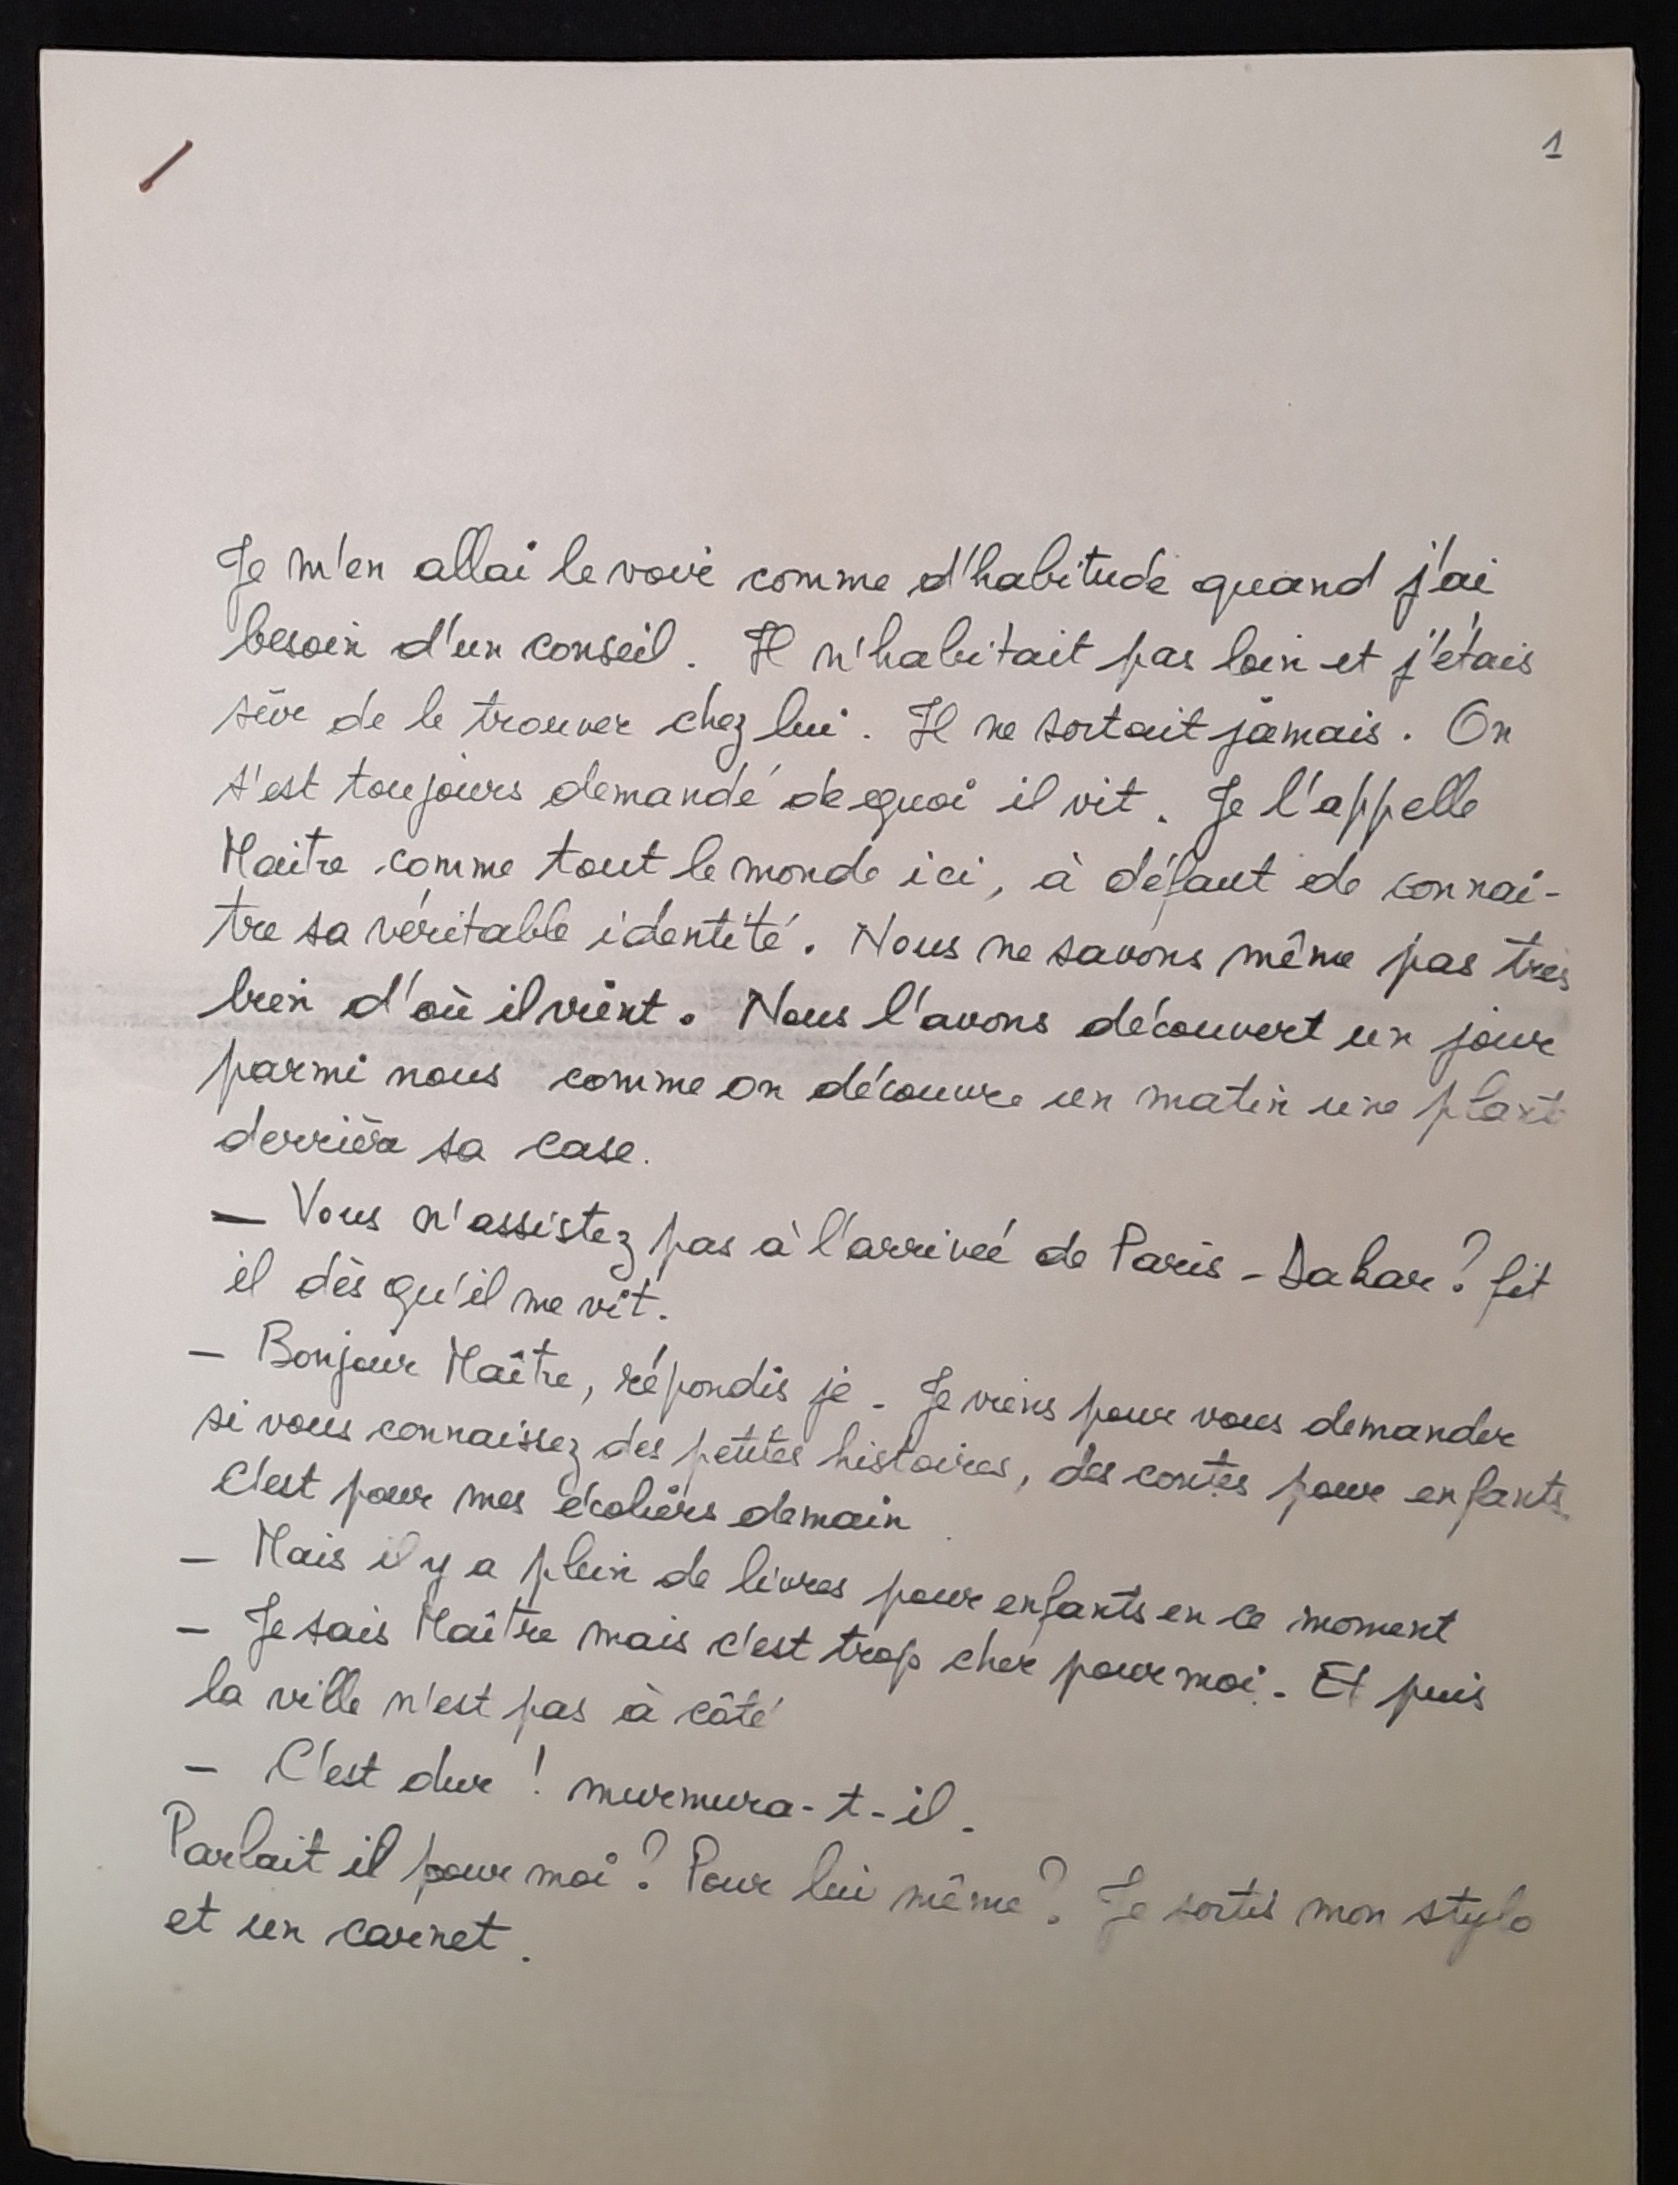 1
Je m'en allai le voir comme d'habitude quand j'ai
besoin d'un conseil. Il n'habitait pas loin et j'étais
sûr de le trouver chez lui. Il ne sortait jamais. On
s'est toujours demandé de quoi il vit. Je l'appelle
Maitre comme tout le monde ici, à défaut de connai-
tre sa véritable identité. Nous ne savons même pas tres
bien d'où il vient. Nous l'avons découvert un jour
parmi nous comme on découvre un matin une plante
derrière sa case.
— Vous n'assistez pas à l'arrivée de Paris-Dakar? fit
il dès qu'il me vit.
— Bonjour Maître, répondis je. Je viens pour vous demander
si vous connaissez des petites histoires, des contes pour enfants.
C'est pour mes écoliers demain
— Mais il y a plein de livres pour enfants en ce moment
— Je sais Maître mais c'est trop cher pour moi. Et puis
la ville n'est pas à côté
— C'est dur ! murmura-t-il.
Parlait il pour moi? Pour lui même? Je sortis mon stylo
et un carnet.